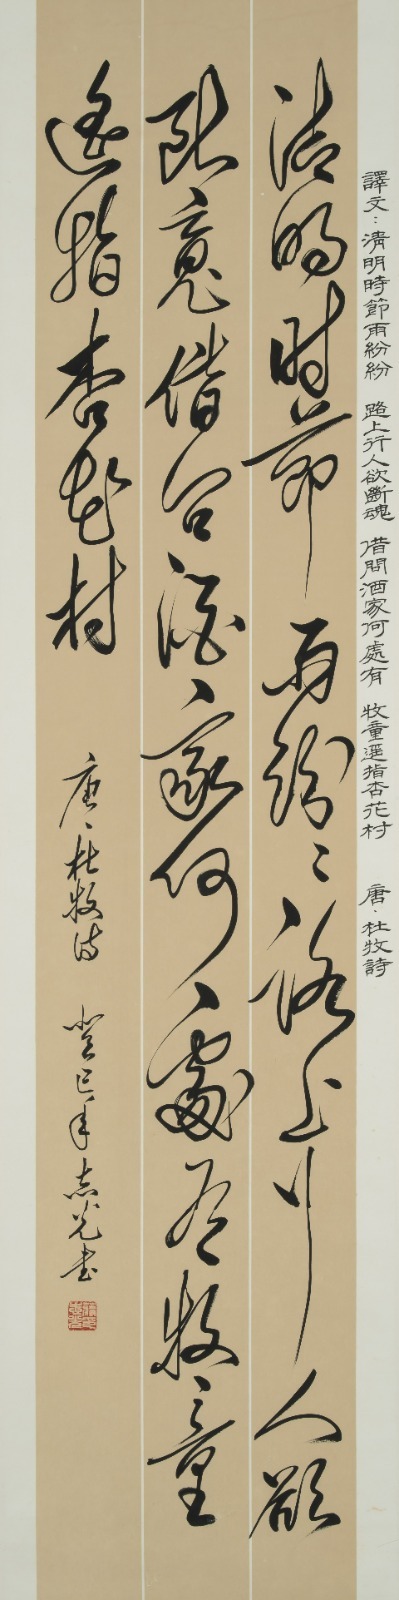 譯文：清明時節雨紛紛 路上行人欲斷魂 借問酒家何處有 牧童遙指杏花村 唐．杜牧詩
清明时節雨紛〻路上行人欲
断魂借问酒家何處有牧童
遙指杏花村
唐、杜牧诗 癸巳年志光书